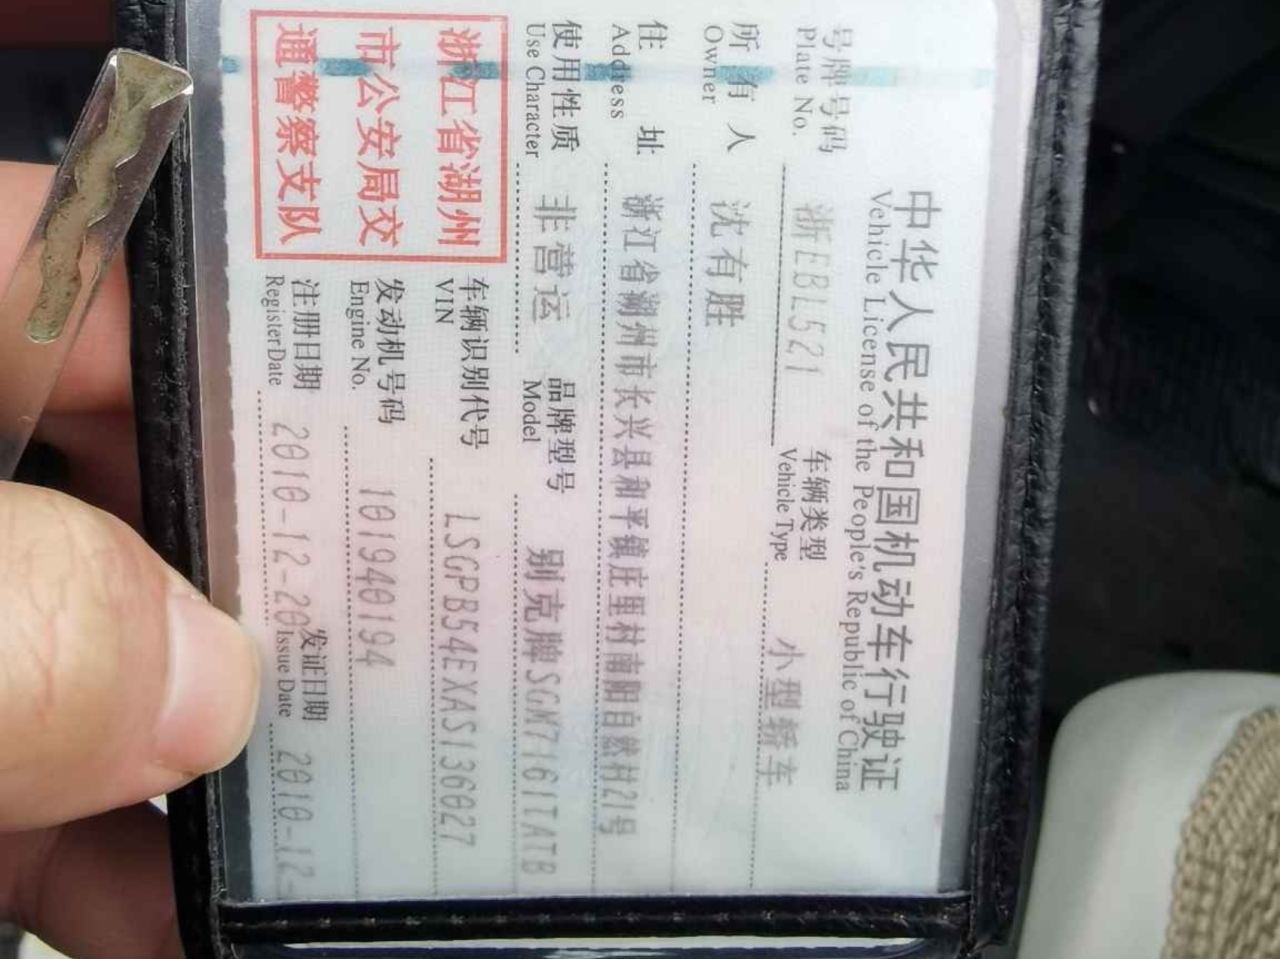 中华人民共和国机动车行驶证
Vehicle License of the People's Republic of China
号牌号码 浙EBL521 车辆类型 小型轿车
Plate No. Vehicle Type
所有人 沈有胜
Owner
住址 浙江省湖州市长兴县和平镇庄里村南阳自然村21号
Address
使用性质 非营运 品牌型号 别克牌SGM7161TATB
Use Character Model
浙江省湖州
市公安局交
通警察支队
车辆识别代号 LSGPB54EXAS136027
VIN
发动机号码 101940194
Engine No.
注册日期 2010-12-20 发证日期 2010-12-
Register Date Issue Date